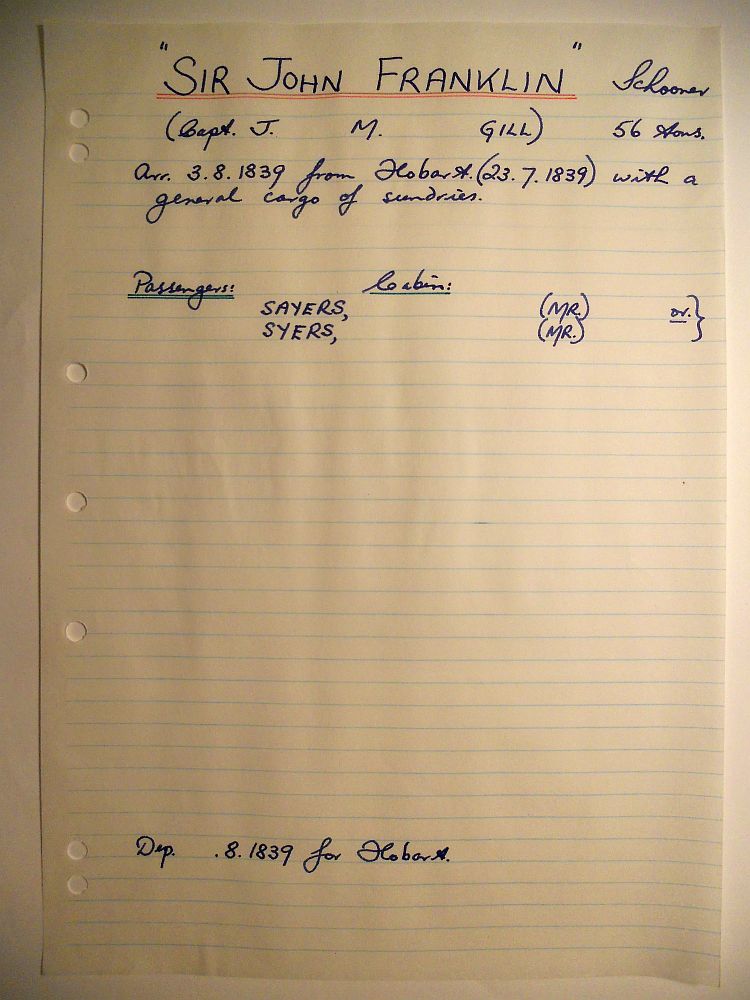 "SIR JOHN FRANKLIN" Schooner
(Capt. J. M. GILL) 56 tons.
Arr. 3.8.1839 from Hobart. (23.7.1839) with a
general cargo of sundries.
Passengers: Cabin:
SAYERS, (MR.) or. }
SYERS, (MR.)
Dep. .8.1839 for Hobart.